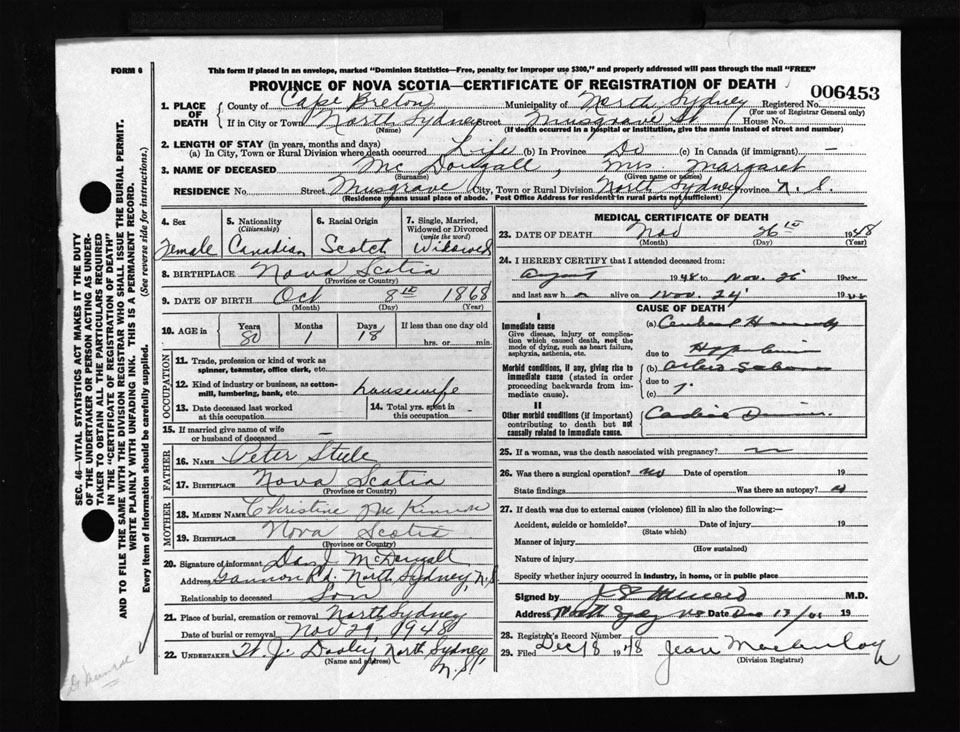 FORM 6
This form if placed in an envelope, marked "Dominion Statistics—Free, penalty for improper use $300," and properly addressed will pass through the mail "FREE"
PROVINCE OF NOVA SCOTIA—CERTIFICATE OF REGISTRATION OF DEATH
006453
1. PLACE OF DEATH
County of Cape Breton Municipality of North Sydney Registered No.
(For use of Registrar General only)
If in City or Town North Sydney Street Musgrave St House No.
(Name) (If death occurred in a hospital or institution, give the name instead of street and number)
2. LENGTH OF STAY (in years, months and days)
(a) In City, Town or Rural Division where death occurred Life (b) In Province Do (c) In Canada (if immigrant) —
3. NAME OF DECEASED Mc Dougall, Mrs. Margaret
(Surname) (Given name or names)
RESIDENCE No. Street Musgrave City, Town or Rural Division North Sydney Province N. S.
(Residence means usual place of abode. Post Office Address for residents in rural parts not sufficient)
4. Sex Female
5. Nationality (Citizenship) Canadian
6. Racial Origin Scotch
7. Single, Married, Widowed or Divorced (write the word) Widowed
8. BIRTHPLACE Nova Scotia
(Province or Country)
9. DATE OF BIRTH Oct 8th 1868
(Month) (Day) (Year)
10. AGE in Years Months Days If less than one day old
80 1 18 hrs. or min.
OCCUPATION
11. Trade, profession or kind of work as spinner, teamster, office clerk, etc.
12. Kind of industry or business, as cotton-mill, lumbering, bank, etc. housewife
13. Date deceased last worked at this occupation
14. Total yrs. spent in this occupation
15. If married give name of wife or husband of deceased —
FATHER
16. NAME Peter Steele
17. BIRTHPLACE Nova Scotia
(Province or Country)
MOTHER
18. MAIDEN NAME Christine
19. BIRTHPLACE Nova Scotia
(Province or Country)
20. Signature of informant Dan J. McDougall
Address Gannon Rd. North Sydney, N.S
Relationship to deceased Son
21. Place of burial, cremation or removal North Sydney
Date of burial or removal Nov 29, 1948
22. UNDERTAKER W. J. Dooley North Sydney N.S.
(Name and address)
MEDICAL CERTIFICATE OF DEATH
23. DATE OF DEATH Nov 26th 1948
(Month) (Day) (Year)
24. I HEREBY CERTIFY that I attended deceased from:
August 1948 to Nov. 26 19
and last saw h alive on Nov. 24 19
CAUSE OF DEATH
I
Immediate cause
Give disease, injury or complication which caused death, not the mode of dying, such as heart failure, asphyxia, asthenia, etc.
(a) Cerebral
due to
Morbid conditions, if any, giving rise to immediate cause (stated in order proceeding backwards from immediate cause).
(b)
due to
(c)
II
Other morbid conditions (if important) contributing to death but not causally related to immediate cause.
Cardiac
25. If a woman, was the death associated with pregnancy?
26. Was there a surgical operation? no Date of operation 19
State findings Was there an autopsy?
27. If death was due to external causes (violence) fill in also the following:—
Accident, suicide or homicide? Date of injury 19
(State which)
Manner of injury
(How sustained)
Nature of injury
Specify whether injury occurred in industry, in home, or in public place
Signed by M.D.
Address North Sydney NS Date Dec 13/48 19
28. Registrar's Record Number
29. Filed Dec 18 1948 Jean
(Division Registrar)
SEC. 46—VITAL STATISTICS ACT MAKES IT THE DUTY
OF THE UNDERTAKER OR PERSON ACTING AS UNDER-
TAKER TO OBTAIN ALL THE PARTICULARS REQUIRED
IN THE "CERTIFICATE OF REGISTRATION OF DEATH"
AND TO FILE THE SAME WITH THE DIVISION REGISTRAR WHO SHALL ISSUE THE BURIAL PERMIT.
WRITE PLAINLY WITH UNFADING INK. THIS IS A PERMANENT RECORD.
Every item of information should be carefully supplied. (See reverse side for instructions.)